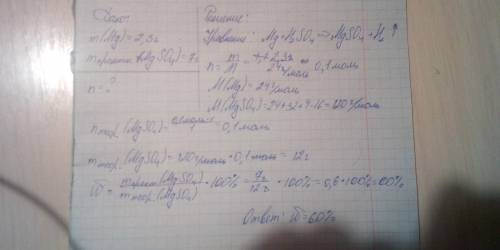 Дано:
m(Mg)=2,3г
mпракт.(MgSO₄)=7г
n=?
Решение:
Уравнение: Mg+H₂SO₄=MgSO₄+H₂↑
n=m/M=2,3г/24г/моль=0,1моль
M(Mg)=24г/моль
M(MgSO₄)=24+32+4·16=120г/моль
nтеор.(MgSO₄)= =0,1моль
mтеор.(MgSO₄)=120г/моль·0,1моль=12г
ω=mпракт(MgSO₄)/mтеор.(MgSO₄)·100%=7г/12г·100%=0,6·100%=60%
Ответ: ω=60%